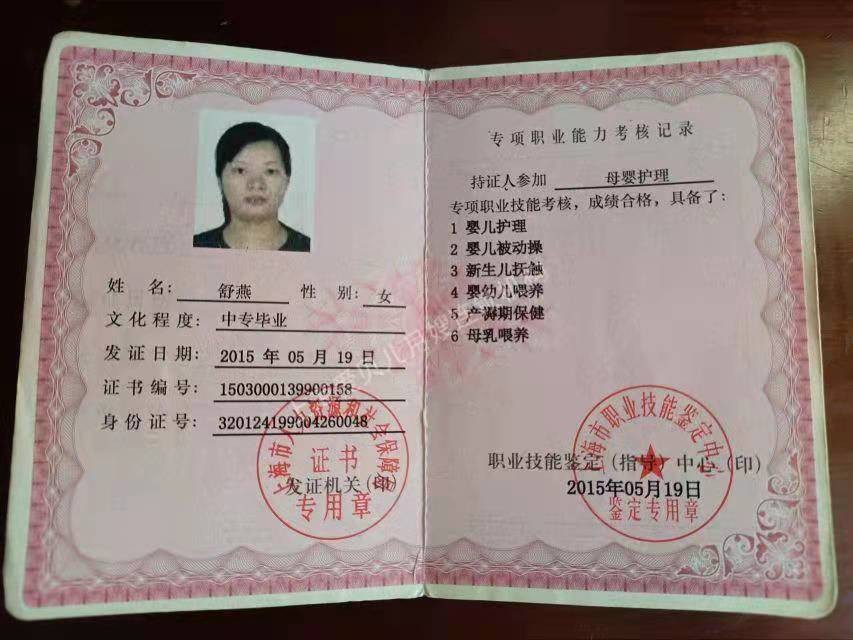 姓 名: 舒燕 性 别: 女
文化程度: 中专毕业
发证日期: 2015 年 05 月 19 日
证书编号: 1503000139900158
身份证号: 320124199004260048
发证机关(印)
上海市人力资源和社会保障局
证书
专用章
专项职业能力考核记录
持证人参加 母婴护理
专项职业技能考核，成绩合格，具备了:
1 婴儿护理
2 婴儿被动操
3 新生儿抚触
4 婴幼儿喂养
5 产褥期保健
6 母乳喂养
职业技能鉴定(指导)中心(印)
2015年05月19日
上海市职业技能鉴定中心
鉴定专用章